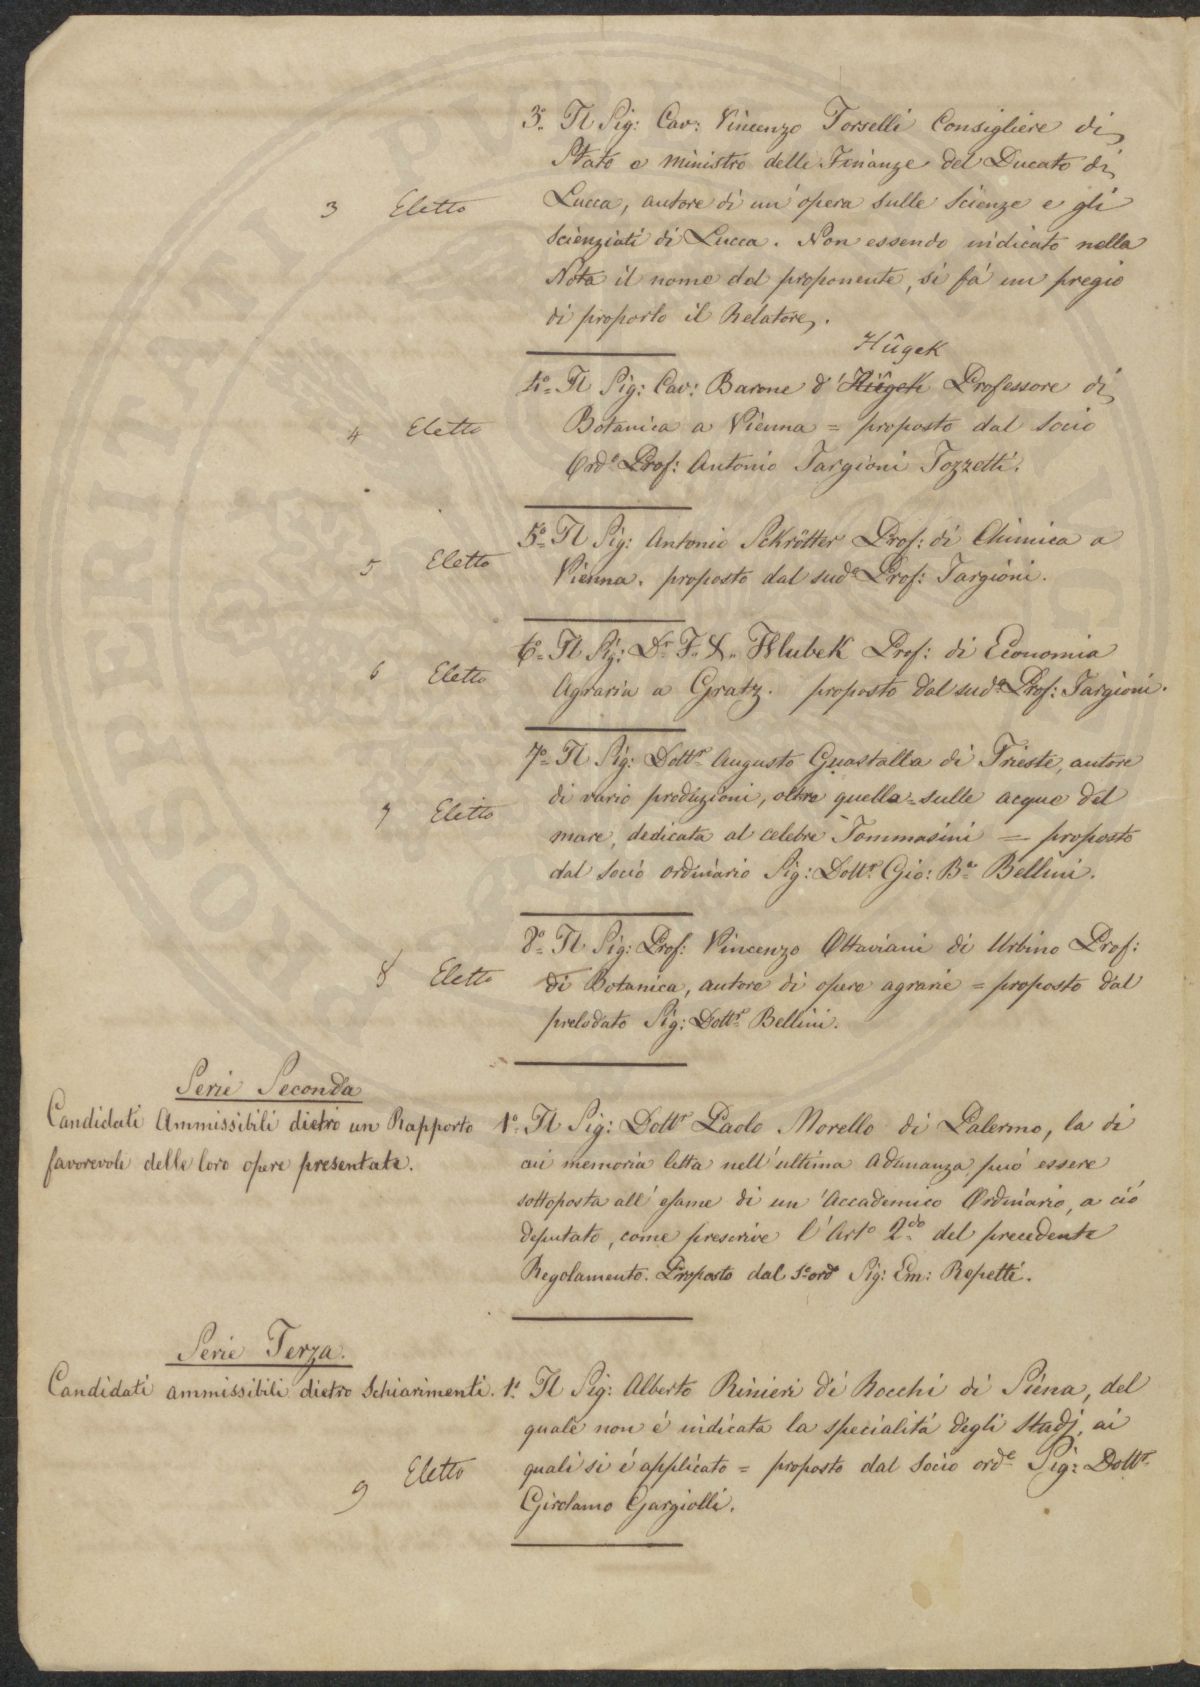 3.° Il Sig: Cav: Vincenzo Torselli Consigliere di
Stato e ministro delle Finanze del Ducato di
3 Eletto
Lucca, autore di un'opera sulle Scienze e gli
Scienziati di Lucca. Non essendo indicato nella
Nota il nome del proponente, si fá un pregio
di proporlo il Relatore.
Hûgek
4.° Il Sig: Cav: Barone d' Hûgek Professore di
4 Eletto
Botanica a Vienna = proposto dal Socio
Ord.° Prof: Antonio Targioni Tozzetti.
5.° Il Sig: Antonio Schrötter Prof: di Chimica a
5 Eletto
Vienna. proposto dal sud.° Prof: Targioni.
6.° Il Sig: D.r F. X. Hlubek Prof: di Economia
6 Eletto
Agraria a Gratz. proposto dal sud.° Prof: Targioni.
7.° Il Sig: Dott.r Augusto Guastalla di Trieste, autore
di varie produzioni, oltre quella sulle acque del
7 Eletto
mare, dedicata al celebre Tommasini = proposto
dal Socio ordinario Sig: Dott.r Gio: B.a Bellini.
8.° Il Sig: Prof: Vincenzo Ottaviani di Urbino Prof:
8 Eletto
di Botanica, autore di opere agrarie = proposto dal
prelodato Sig: Dott.r Bellini.
Serie Seconda
Candidati Ammissibili dietro un Rapporto
favorevole delle loro opere presentate.
1.° Il Sig: Dott.r Paolo Morello di Palermo, la di
cui memoria letta nell'ultima Adunanza puó essere
sottoposta all'esame di un'Accademico Ordinario, a ció
deputato, come prescrive l'Art.° 2.do del precedente
Regolamento. Proposto dal S.° ord.° Sig: Em: Repetti.
Serie Terza.
Candidati ammissibili dietro Schiarimenti.
1.° Il Sig: Alberto Rinieri de' Rocchi di Siena, del
quale non é indicata la specialitá degli Studj, ai
9 Eletto
quali si é applicato = proposto dal Socio ord.e Sig: Dott.r
Girolamo Gargiolli.